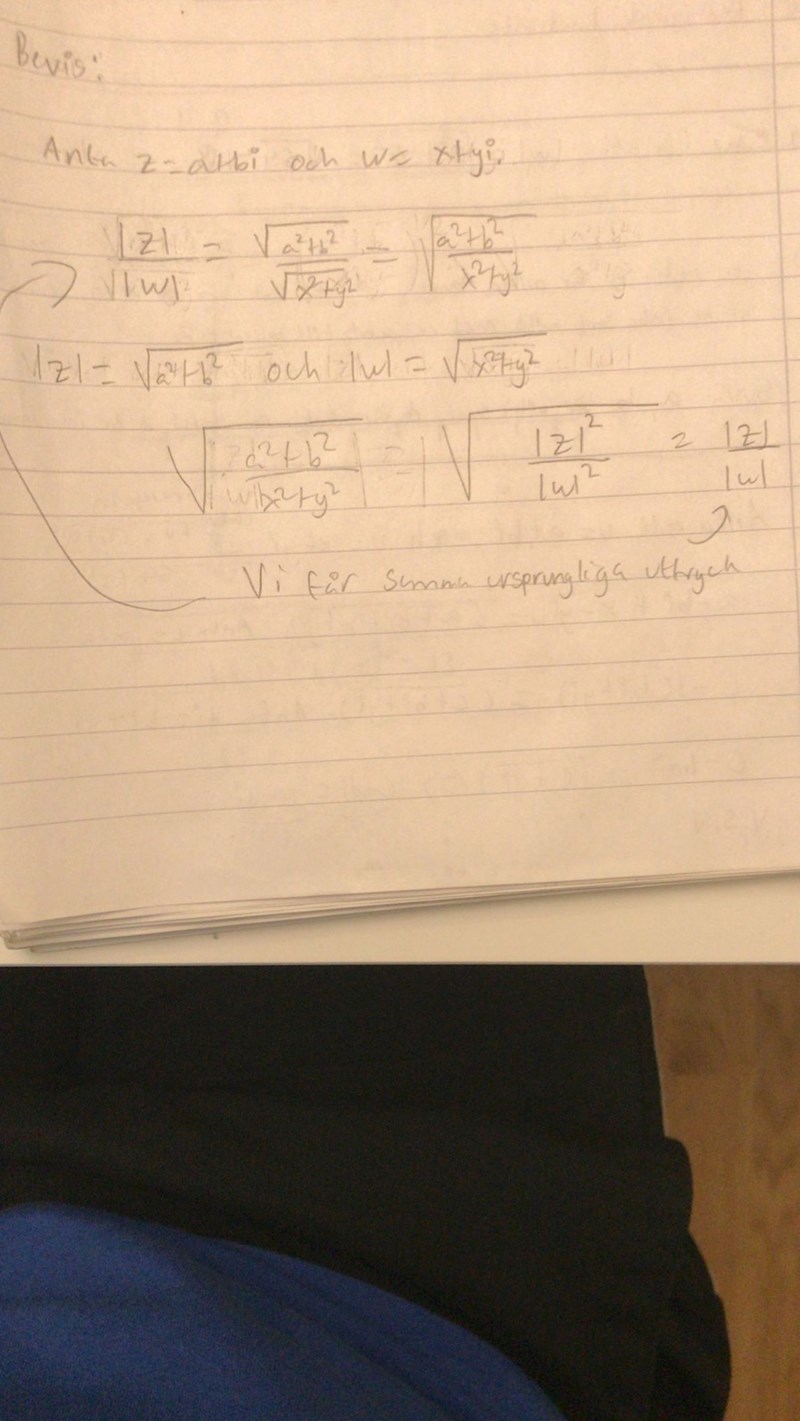 Bevis:
Anta z = a+bi och w = x+yi.
|z|/|w| = √(a²+b²)/√(x²+y²) = √((a²+b²)/(x²+y²))
|z| = √(a²+b²) och |w| = √(x²+y²)
√((a²+b²)/(x²+y²)) = √(|z|²/|w|²) = |z|/|w|
Vi får samma ursprungliga uttryck